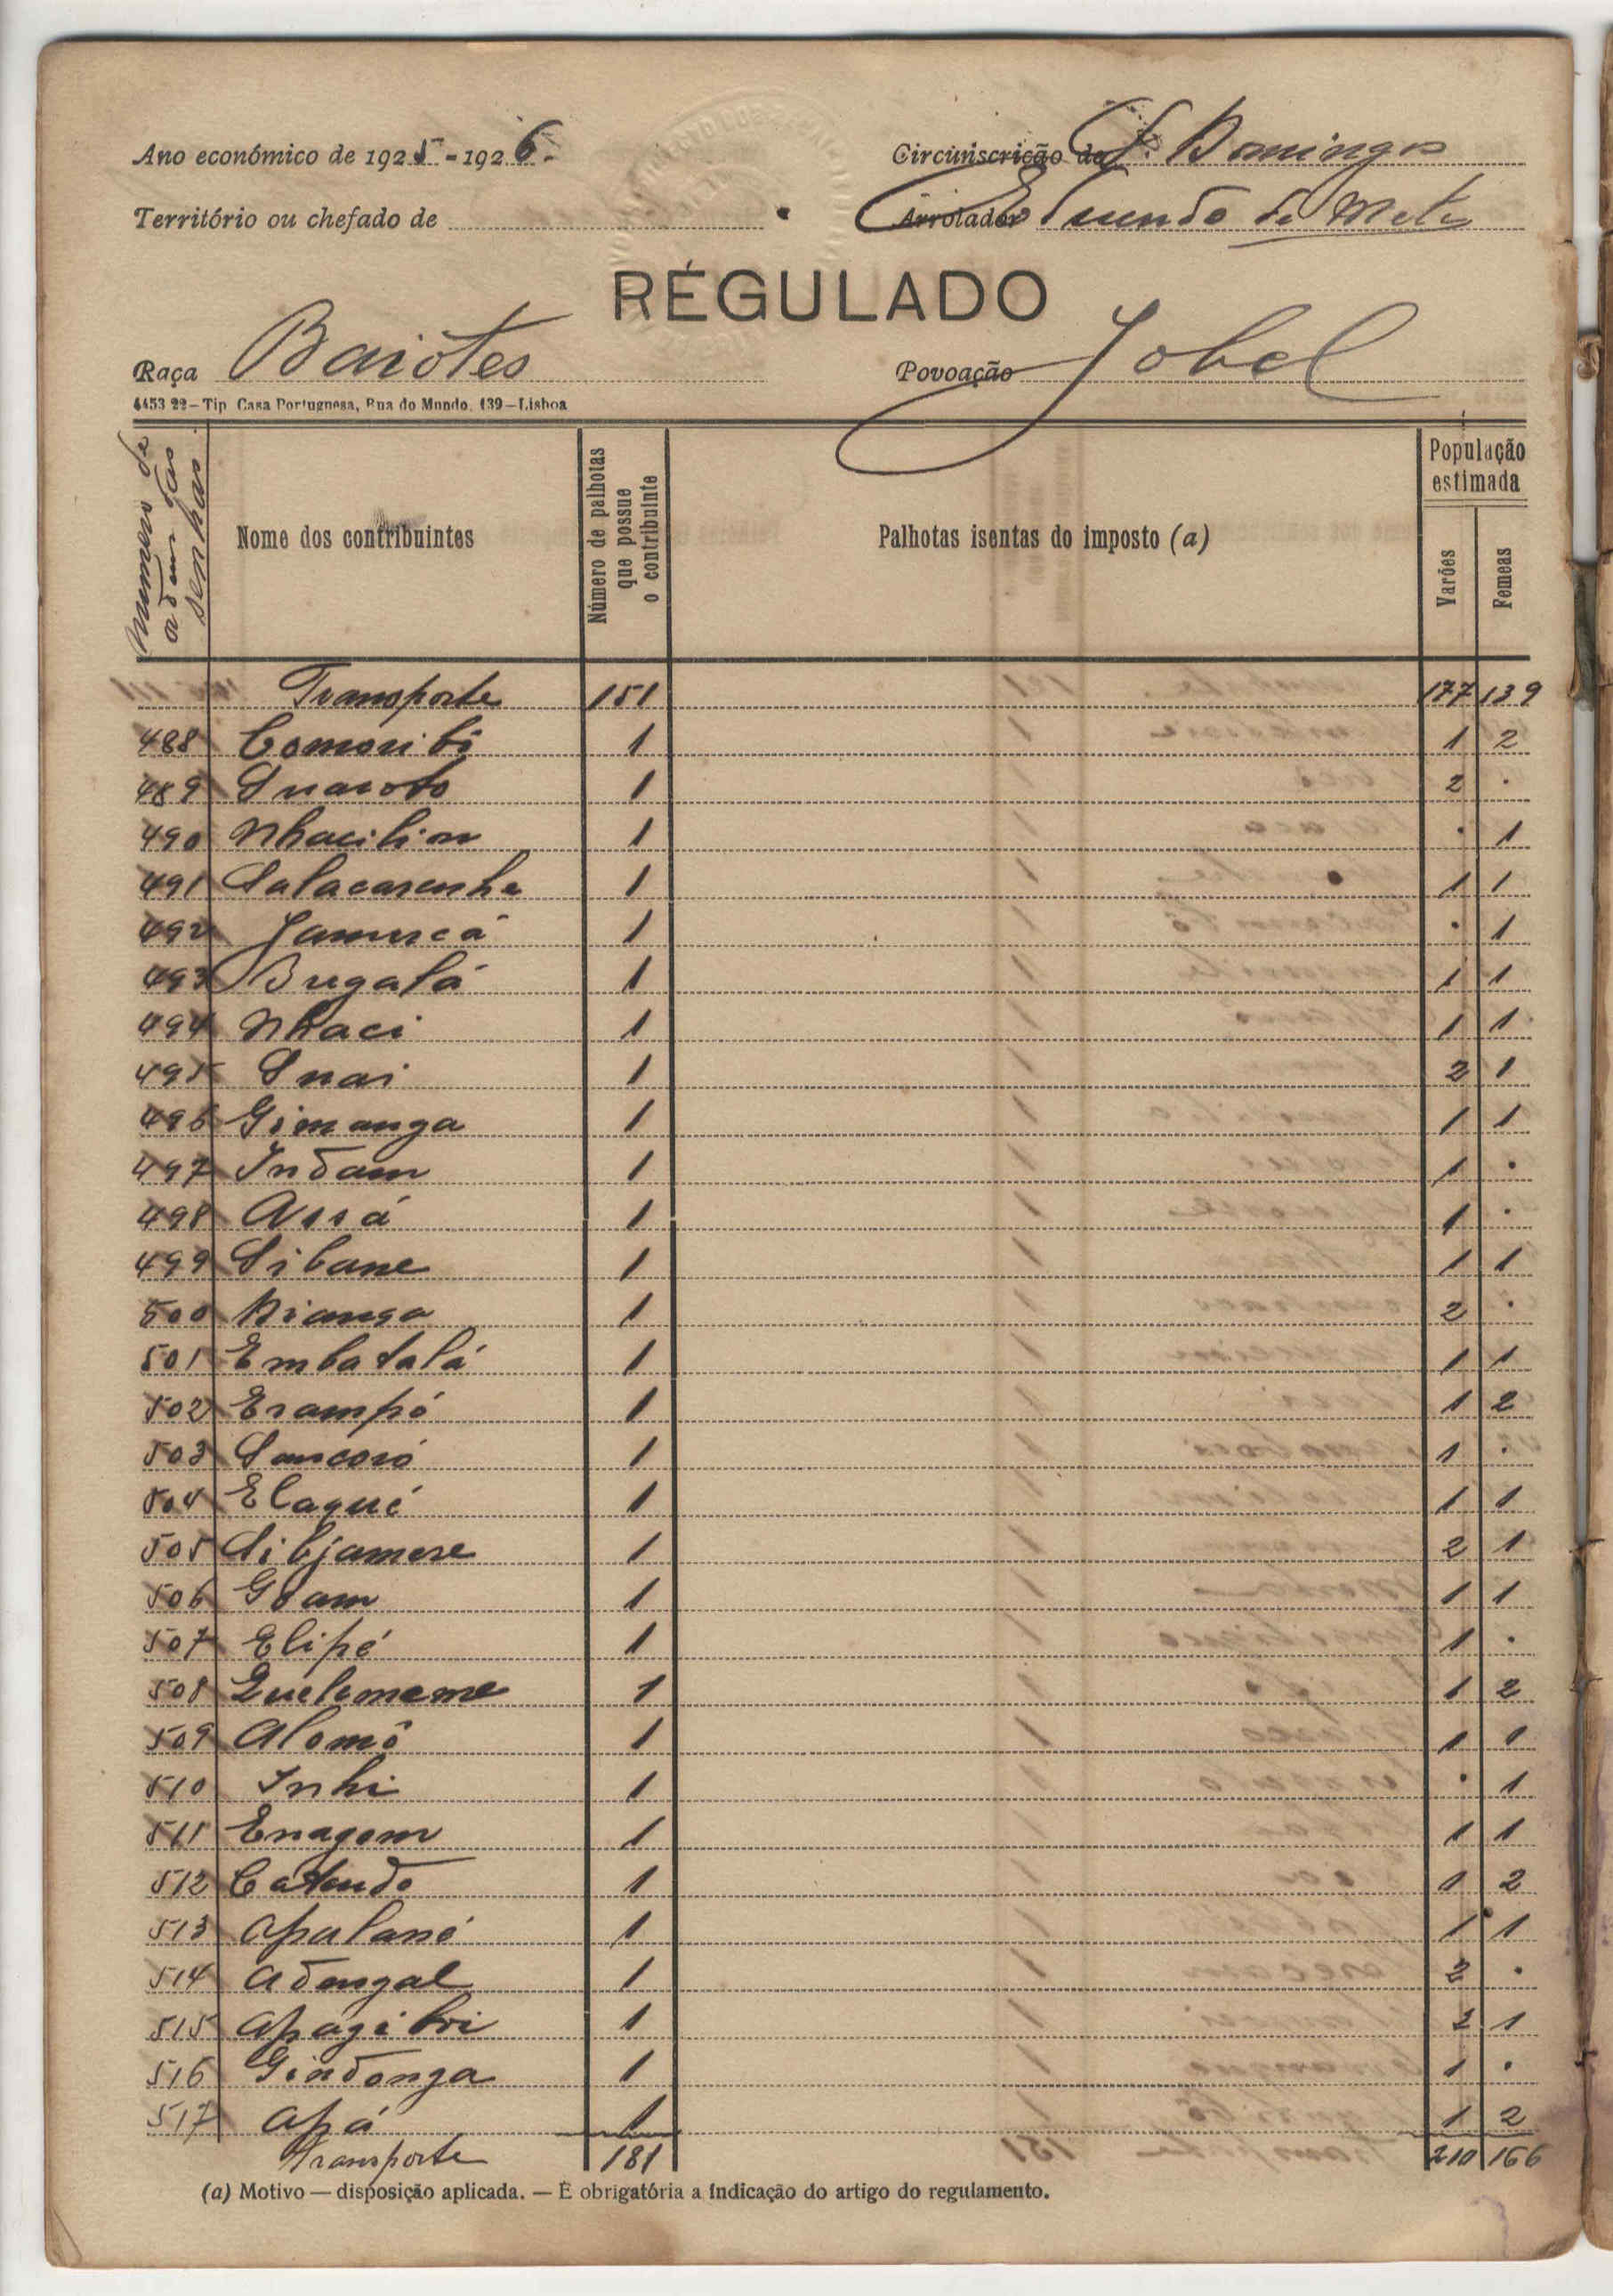 Ano económico de 1925-1926.
Circunscrição de S. Domingos
Território ou chefado de
Arrolador
RÉGULADO
Raça Baiotes
Povoação Jobel
4453 22—Tip Casa Portuguesa, Rua do Mundo, 139—Lisboa
Numero de ordem das senhas
Nome dos contribuintes
Número de palhotas que possue o contribuinte
Palhotas isentas do imposto (a)
População estimada
Varões
Femeas
Transporte 151 177 139
488 1 1 2
489 1 2 .
490 Nhacilim 1 . 1
491 1 1 1
492 Jamucá 1 . 1
493 Bugalá 1 1 1
494 Nhaci 1 1 1
495 Snai 1 2 1
496 Gimanga 1 1 1
497 Indam 1 1 .
498 Assá 1 1 .
499 Sibane 1 1 1
500 Biansa 1 2 .
501 Embatalá 1 1 1
502 Erampó 1 1 2
503 Sancoró 1 1 .
504 Elaqué 1 1 1
505 1 2 1
506 1 1 1
507 Elipé 1 1 .
508 1 1 2
509 Alomô 1 1 1
510 Inhi 1 . 1
511 Enagom 1 1 1
512 Catendo 1 1 2
513 Apalané 1 1 1
514 Adengal 1 2 .
515 1 2 1
516 Gindonga 1 1 .
517 Apá 1 1 2
Transporte 181 210 166
(a) Motivo — disposição aplicada. — É obrigatória a indicação do artigo do regulamento.